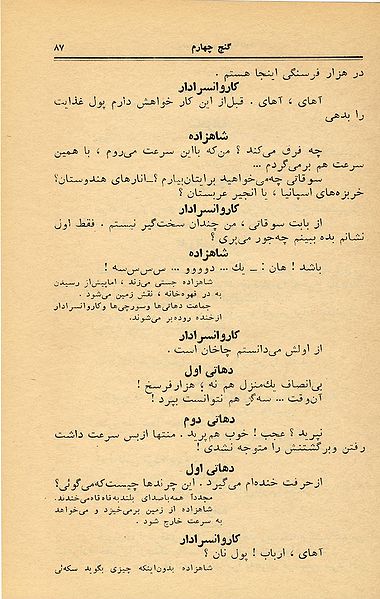 گنج چهارم ۸۷
در هزار فرسنگی اینجا هستم .
کاروانسرادار
آهای ، آهای . قبل‌از این کار خواهش دارم پول غذایت
را بدهی
شاهزاده
چه فرق می‌کند ؟ من‌که بااین سرعت می‌روم ، با همین
سرعت هم برمی‌گردم ...
سوقاتی چه‌می‌خواهید برایتان‌بیارم ؟ـ انارهای هندوستان؟
خربزه‌های اسپانیا ، یا انجیر عربستان ؟
کاروانسرادار
از بابت سوقاتی ، من چندان سخت‌گیر نیستم . فقط اول
نشانم بده ببینم چه‌جور می‌پری ؟
شاهزاده
باشد ! هان : ــ یك ... دوووو ... س‌س‌س‌سه !
شاهزاده جستی می‌زند ، اماپیش‌از رسیدن
به در قهوه‌خانه ، نقش زمین می‌شود .
جماعت دهاتی‌ها وسورچی‌ها وکاروانسرادار
ازخنده روده‌بر می‌شوند.
کاروانسرادار
از اولش می‌دانستم چاخان است .
دهاتی اول
بی‌انصاف یك‌منزل هم نه ؛ هزارفرسخ !
آن‌وقت ... سه‌گز هم نتوانست بپرد !
دهاتی دوم
نپرید ؟ عجب ! خوب هم‌پرید . منتها ازبس سرعت داشت
رفتن وبرگشتنش را متوجه نشدی !
دهاتی اول
ازحرفت خنده‌ام می‌گیرد . این چرندها چیست‌که‌می‌گوئی؟
مجدداً همه‌باصدای بلندبه‌قاه‌قاه‌می‌خندند.
شاهزاده از زمین برمی‌خیزد و می‌خواهد
به سرعت خارج شود .
کاروانسرادار
آهای ، ارباب ! پول نان ؟
شاهزاده بدون‌اینکه چیزی بگوید سکه‌ئی